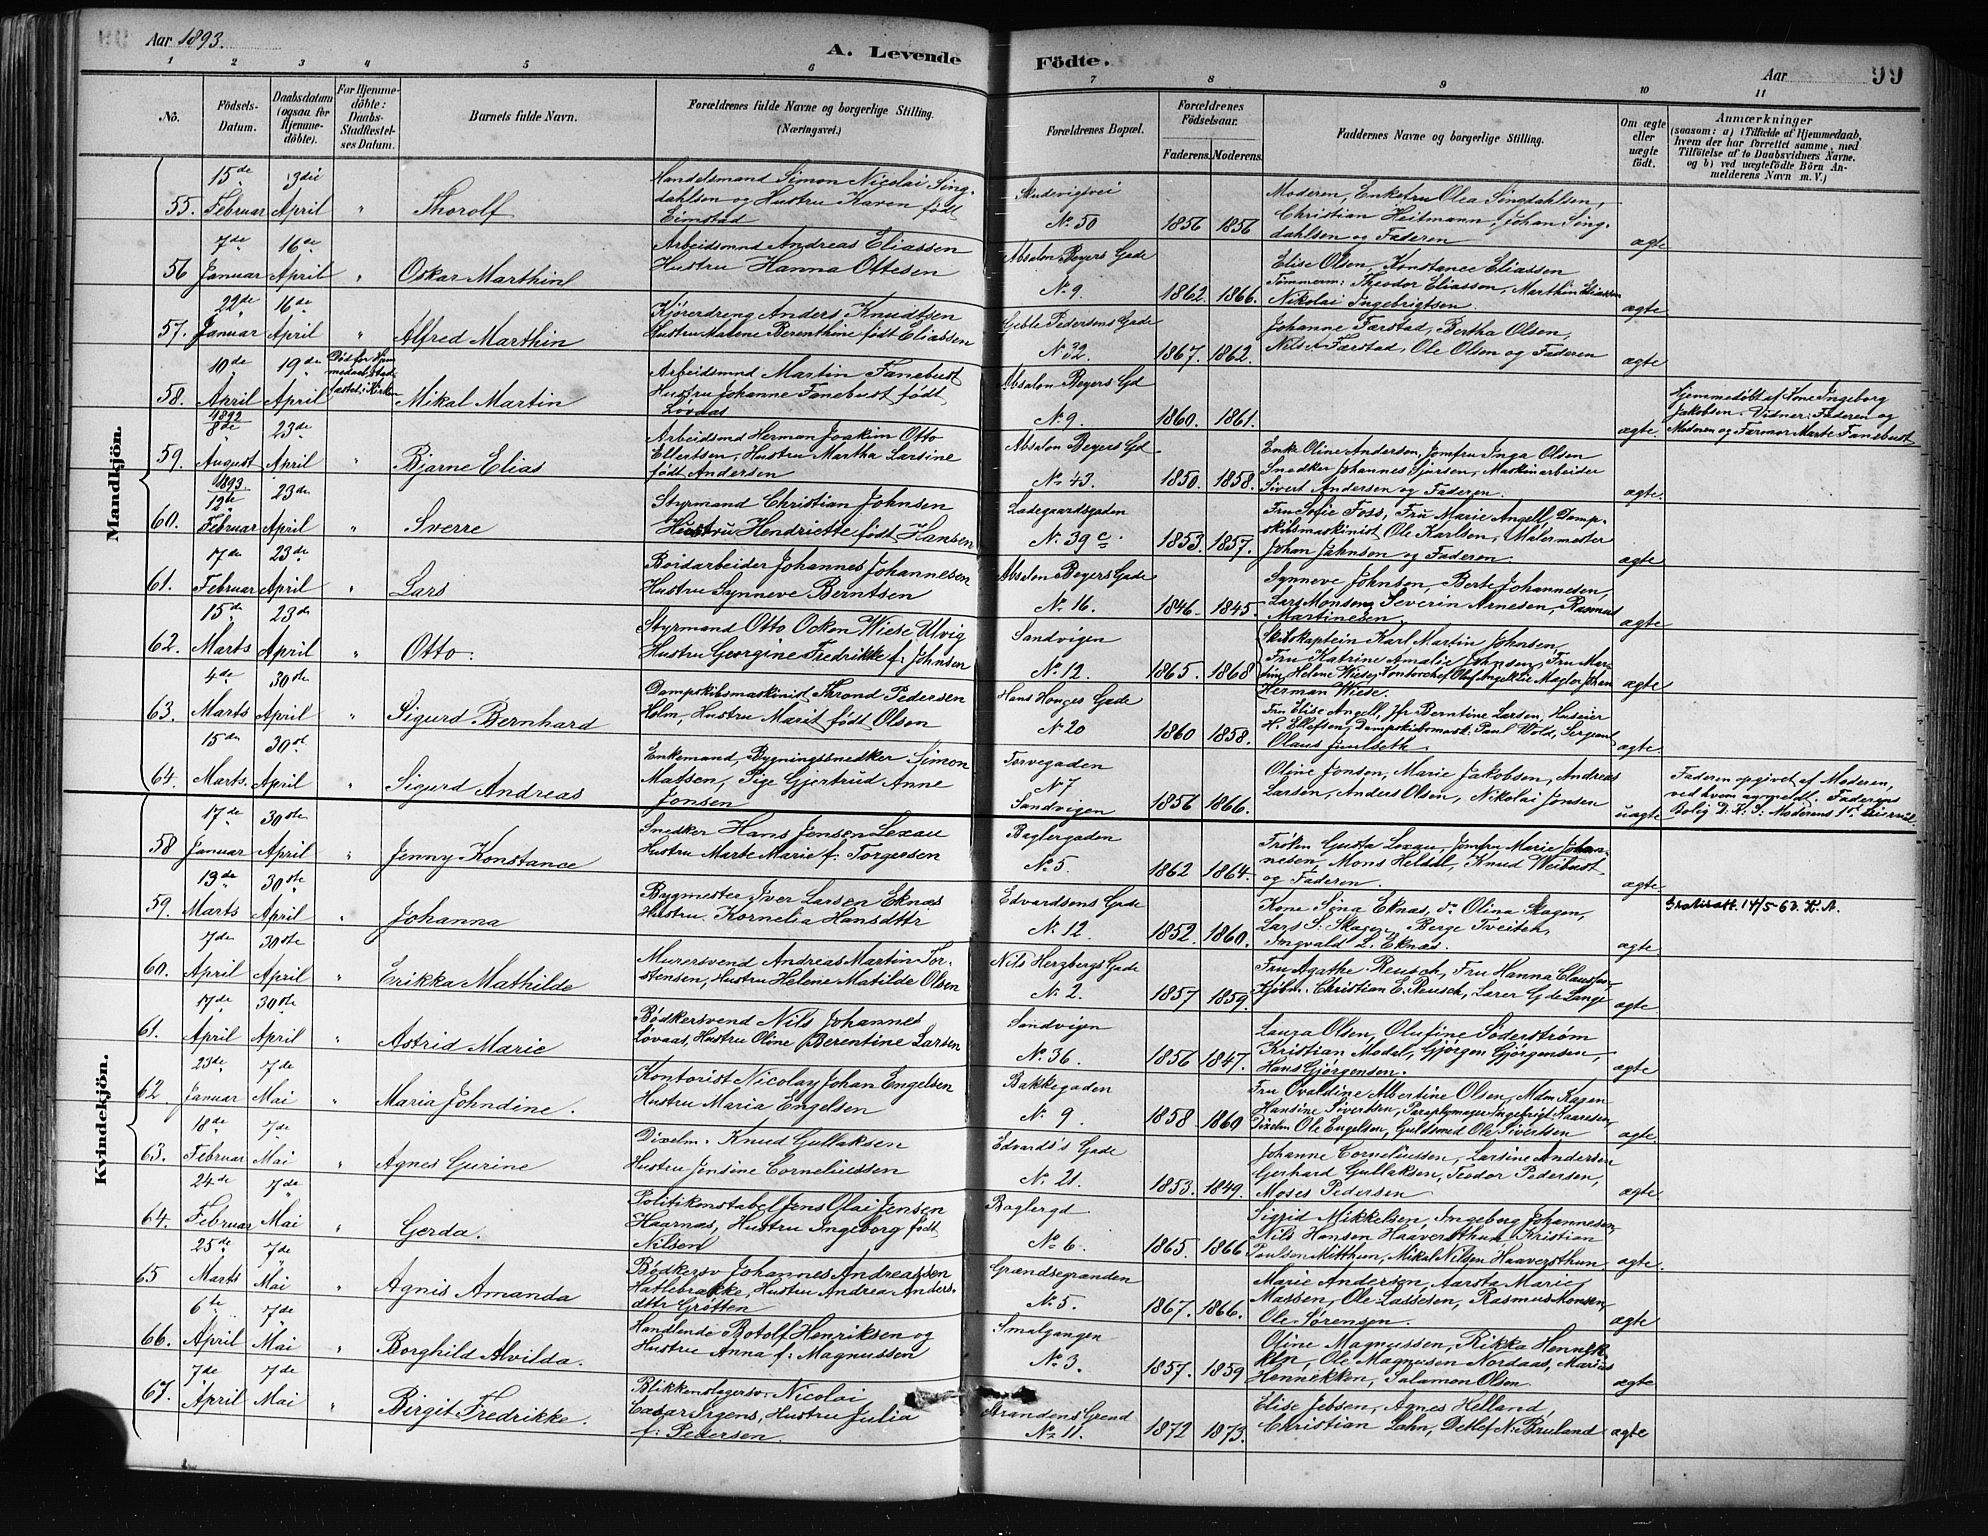 Aar 1893.
A. Levende Födte.
Aar
99
1 2 3 4 5 6 7 8 9 10 11
No.
Födsels-Datum.
Daabsdatum (ogsaa for Hjemmedøbte).
For Hjemmedøbte: Daabs-Stadfæstelses Datum.
Barnets fulde Navn.
Forældrenes fulde Navne og borgerlige Stilling. (Næringsvei.)
Forældrenes Bopæl.
Forældrenes Födselsaar.
Faderens. Moderens.
Faddernes Navne og borgerlige Stilling.
Om ægte eller uægte født.
Anmærkninger
(saasom: a) i Tilfælde af Hjemmedaab, hvem der har forrettet samme, med Tilföielse af to Daabsvidners Navne, og b) ved uægtefödte Börn Anmelderens Navn m. V.)
Mandkjön.
55. 15de Februar 3die April " Thorolf
Handelsmand Simon Nicolai Singdahlsen og Hustru Karen født Eimstad
Skudevigsvei No 50 1856 1856
Moderen, Enkefru Olea Singdahlsen, Christian Heitmann, Johan Singdahlsen og Faderen
ægte
56 7de Januar 16de April " Oskar Marthin
Arbeidsmnd Andreas Eliassen Hustru Hanna Ottesen
Absalon Beyers Gade No 9. 1862. 1866.
Elise Olsen, Konstance Eliassen Tømmerm: Theodor Eliasson, Marthin Eliassen Nikolai Ingebrigtsen.
ægte
57. 22de Januar 16de April " Alfred Marthin
Kjøredreng Anders Knudtsen Hustru Malene Berenthine født Eliassen
Geble Pedersens Gade No 32. 1867. 1862.
Johanne Farstad, Bertha Olsen, Nils Farstad, Ole Olsen og Faderen
ægte
58. 10de April 19de April Mikal Martin
Arbeidsmnd Martin Fanebust Hustru Johanne Fanebust født Løvaas
Absalon Beyers Gd No 9. 1860. 1861.
ægte.
Hjemmedøbt af Kone Ingeborg Jakobsen. Vidner: Faderen og Moderen og Farmor Marte Fanebust
59. 1892 8de August 23de April " Bjarne Elias
Arbeidsmd Herman Joakim Otto Ellertsen, Hustru Martha Larsine født Andersen
Absalon Beyers Gd No 43. 1850. 1858.
Enke Oline Andersen, Jomfru Inga Olsen Snedker Johannes Sjursen, Maskinarbeider Sivert Andersen og Faderen.
ægte
60. 1893 12te Februar 23de April " Sverre
Styrmand Christian Johnsen Hustru Hendriette født Hansen
Ladegaardsgaden No 39 c. 1853. 1857.
Fru Sofie Foss, Fru Marie Angell, Dampskibsmaskinist Ole Karlsen, Malermester Johan Johnsen og Faderen.
ægte
61. 17de Februar 23de April " Lars
Hustru Synneve Berntsen
Absalon Beyers Gade No 16. 1846. 1845.
Synneve Johnsen, Berte Johannesen, Lars Monsen, Severin Arnesen, Rasmus Martinesen.
ægte
62. 15de Marts 23de April " Otto.
Styrmand Otto Ocken Wiese Ulvig Hustru Georgine Fredrikke f: Johnsen
Sandvigen No 12. 1865. 1868
Skibskaptein Karl Martin Johnsen, Fru Katrine Amalie Johnsen, Fru Martine Helene Wiese, Herman Wiese.
ægte
63. 4de Marts 30te April " Sigurd Bernhard
Dampskibsmaskinist Thrond Pedersen Holm, Hustru Marit født Olsen
Hans Hauges Gade No 20 1860 1858.
Fru Elise Angell, Jfr Berntine Larsen, Huseier H. Ellefsen, Dampskibsmask: Paul Wold, Sergeant Olaus Juulseth.
ægte
64. 15de Marts. 30te April " Sigurd Andreas
Enkemand, Bygningssnedker Simon Matsen, Pige Gjertrud Anne Jonsen
Torvegaden No 7 Sandvigen 1856 1866.
Oline Jonsen, Marie Jakobsen, Andreas Larsen, Anders Olsen, Nikolai Jonsen
uægte
Faderen opgivet af Moderen, ved hvem anmeldt. Faderens Bolig D. K. S. Moderens 1ste
Kvindekjön.
58 17de Januar 30te April " Jenny Konstance
Snedker Hans Jensen Lexau Hustru Marte Marie f: Torgersen
Baglergaden No 5. 1862 1864.
Frøken Gusta Lexau, Jomfru Marie Johannesen, Mons Heldal, Knud Weibust og Faderen.
ægte
59. 13de Marts 30te April " Johanna
Bygmester Iver Larsen Eknæs Hustru Kornelia Hansdttr
Edvardsens Gade No 12. 1852. 1860.
Kone Signa Eknæs, do Olina Skagen, Lars S. Skagen, Berge Tveiteh, Ingvald L. Eknæs.
ægte
14/5-63. K. A.
60. 7de April 30te April " Erikka Mathilde
Murersvend Andreas Martin Torstensen, Hustru Helene Matilde Olsen
Nils Herzbergs Gade No 2. 1857 1859.
Fru Agathe Reusch, Fru Hanna Kjøbm. Christian E. Reusch, Lærer G de Lange
ægte
61. 17de April 30te April " Astrid Marie
Bødkersvend Nils Johannes Løvaas, Hustru Oline Berentine Larsen
Sandvign No 36. 1856 1847.
Laura Olsen, Olufine Söderstrøm Kristian Modal, Gjørgen Gjørgensen, Hans Gjørgensen.
ægte
62 23de Januar 7de Mai " Maria Johndine.
Kontorist Nicolay Johan Engelsen Hustru Maria Engelsen
Bakkegaden No 9. 1858 1860
Fru Ovaldine Albertine Olsen, Mdm Karen Hansine Sivertsen, Ole Engelsen, Guldsmed Ole Sivertsen
ægte
63. 18de Februar 7de Mai " Agnes Gurine
Dixelm. Knud Gullaksen Hustru Jensine Corneliussen
Edvards's Gade No 21. 1853. 1849.
Johanne Corneliussen, Larsine Andersen Gerhard Gullaksen, Teodor Pedersen, Moses Pedersen
ægte
64. 24de Februar 7de Mai " Gerda.
Politikonstabel Jens Olai Jensen Haarnæs, Hustru Ingeborg født Nilsen
Baglergd No 6. 1865. 1866
Sigrid Mikkelsen, Ingeborg Johannesen, Nils Hansen Haaversthun, Kristian Poulsen Mitthun, Mikal Nilsen Haaversthun
ægte.
65 25de Marts 7de Mai " Agnis Amanda
Bødkersv Johannes Andreassen Hatlebrække, Hustru Andrea Andersdttr Grotten
Grændsegranden No 5. 1867. 1866.
Marie Andersen, Aarsta Marie Massen, Ole Lassesen, Rasmus Monsen, Ole Sørensen.
ægte
66. 6te April 7de Mai " Borghild Alvilda.
Handlende Botolf Henriksen og Hustru Anna f: Magnussen
Smalgangen No 3. 1857. 1859
Oline Magnussen, Rikka Hennekken, Ole Magnusen Nordaas, Marius Hennekken, Salamon Olsen
ægte
67. 7de April 7de Mai " Birgit Fredrikke.
Blikkenslagersv: Nicolai Cæsar Irgens, Hustru Julia f: Pedersen.
Strandens Grend No 11. 1872 1873.
Elise Jebsen, Agnes Helland, Christian Lahn, Detlef N. Bruland
ægte